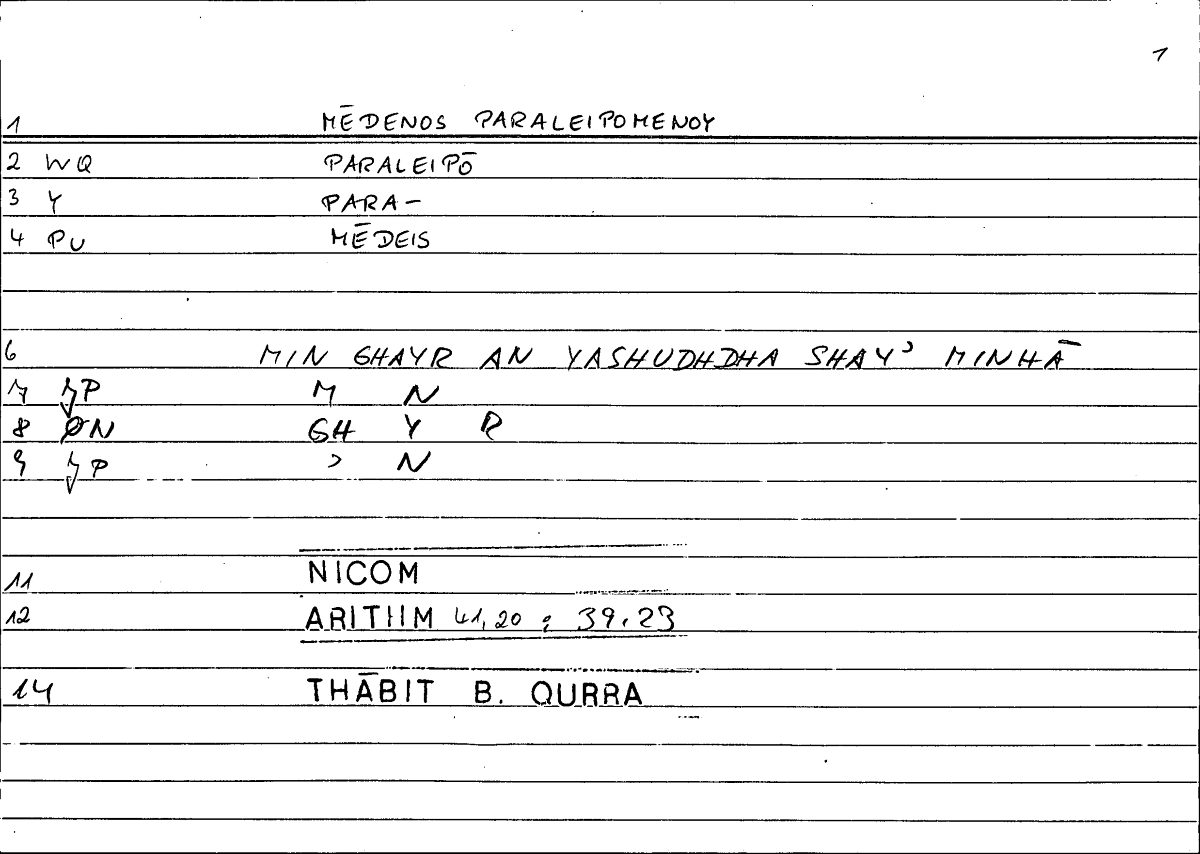 1
1 MĒDENOS PARALEIPOMENOY
2 WQ PARALEIPŌ
3 Y PARA-
4 PU MĒDEIS
6 MIN GHAYR AN YASHUDHDHA SHAYʾ MINHĀ
7 P M N
8 ØN GH Y R
9 P ʾ N
11 NICOM
12 ARITHM 41,20 ; 39,23
14 THĀBIT B. QURRA